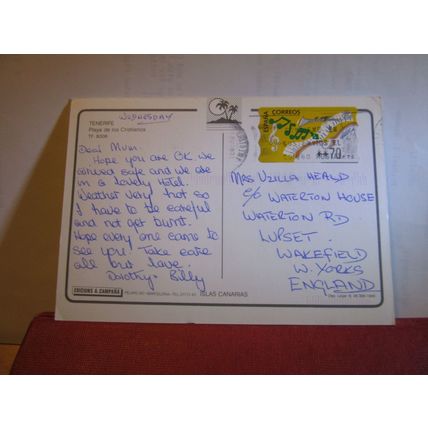 WEDNESDAY
TENERIFE
Playa de los Cristianos
TF 8006
Dear Mum.
Hope you are OK we
arrived safe and we are
in a lovely Hotel.
Weather very hot so
I have to be careful
and not get burnt.
Hope every one came to
see you. Take care
all our love.
Dorothy. Billy
EDICIONS A CAMPAÑA
ISLAS CANARIAS
ESPAÑA CORREOS
**70
MRS UZILLA HEALD
c/o WATERTON HOUSE
WATERTON RD
LUPSET.
WAKEFIELD
W. YORKS
ENGLAND